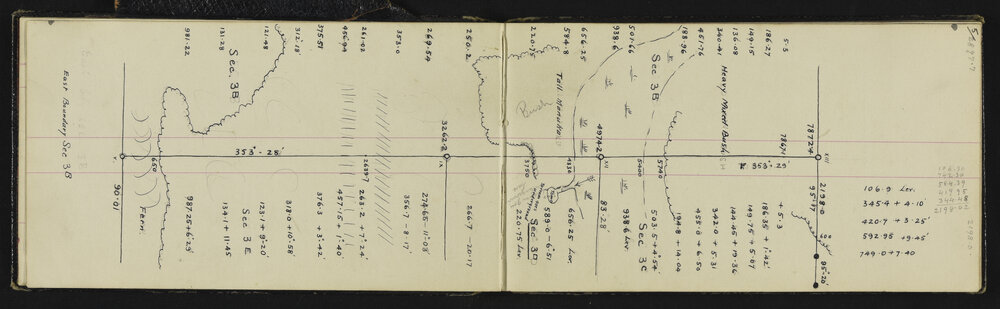 East Boundary Sec 3B
90·01
650
Fern
981·22
987·25 + 6·29'
131·28
134·1 + 11·45
Sec. 3B
Sec 3E
121·48
123·1 + 9°·20'
312·18
318·0 + 10°·58'
353°·28'
375·51
376·3 + 3°·42'
456·94
457·15 + 1°·40'
261·42
263·2 + 7°·24'
2689·7
353·0
356·7 - 8·17
269·54
274·65 - 11°·03'
3262·2
IX
250·2
266·7 - 20·17
220·75
220·75 Lev.
3750
Bush
Sec 3D
584·8
589·0 - 6°·51
Tall Manuka
4336
656·25
656·25 Lev.
4974·2
XII
83·28
938·6
938·6 Lev.
501·66
503·5 + 4°·54'
Sec 3B
Sec 3C
5400
5740
188·96
194·8 + 14·04
451·76
455·8 + 6·50
340·41
342·0 + 5·31
Heavy Mixed Bush
353°·29'
136·08
144·45 + 19·36
149·15
149·75 + 5·07
186·27
186·35 + 1°·42'
5·3
+ 5·3
7867·1
7872·4
XIII
2198·0
95°·17'
600
95°·20'
106·9 Lev.
345·4 + 4·10'
420·7 + 3·25'
592·95 + 9·45'
749·0 + 7·40
2198·0